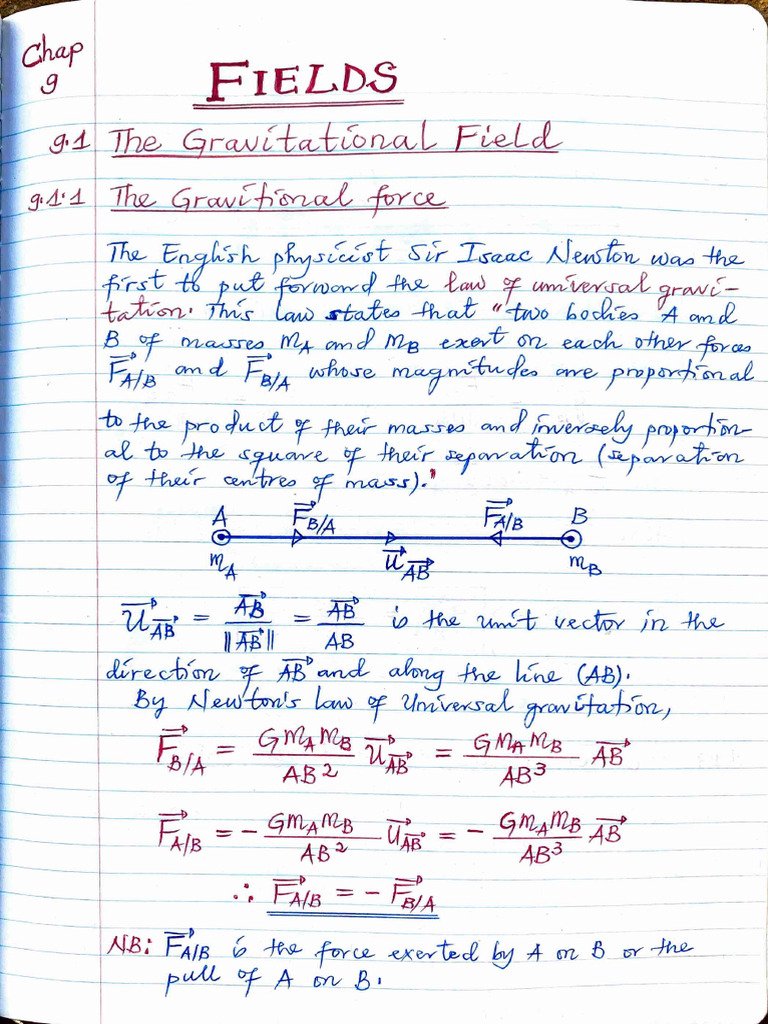 Chap
9
FIELDS
9.1 The Gravitational Field
9.1.1 The Gravitional force
The English physicist Sir Isaac Newton was the
first to put forward the law of universal gravi-
tation. This law states that "two bodies A and
B of masses m_A and m_B exert on each other forces
\overrightarrow{F}_{A/B} and \overrightarrow{F}_{B/A} whose magnitudes are proportional
to the product of their masses and inversely proportion-
al to the square of their separation (separation
of their centres of mass)."
A \overrightarrow{F}_{B/A} \overrightarrow{F}_{A/B} B
m_A \overrightarrow{u}_{\overrightarrow{AB}} m_B
\overrightarrow{u}_{\overrightarrow{AB}} = \frac{\overrightarrow{AB}}{||\overrightarrow{AB}||} = \frac{\overrightarrow{AB}}{AB} is the unit vector in the
direction of \overrightarrow{AB} and along the line (AB).
By Newton's law of Universal gravitation,
\overrightarrow{F}_{B/A} = \frac{G m_A m_B}{AB^2} \overrightarrow{u}_{\overrightarrow{AB}} = \frac{G m_A m_B}{AB^3} \overrightarrow{AB}
\overrightarrow{F}_{A/B} = -\frac{G m_A m_B}{AB^2} \overrightarrow{u}_{\overrightarrow{AB}} = -\frac{G m_A m_B}{AB^3} \overrightarrow{AB}
∴ \overrightarrow{F}_{A/B} = -\overrightarrow{F}_{B/A}
NB: \overrightarrow{F}_{A/B} is the force exerted by A on B or the
pull of A on B.